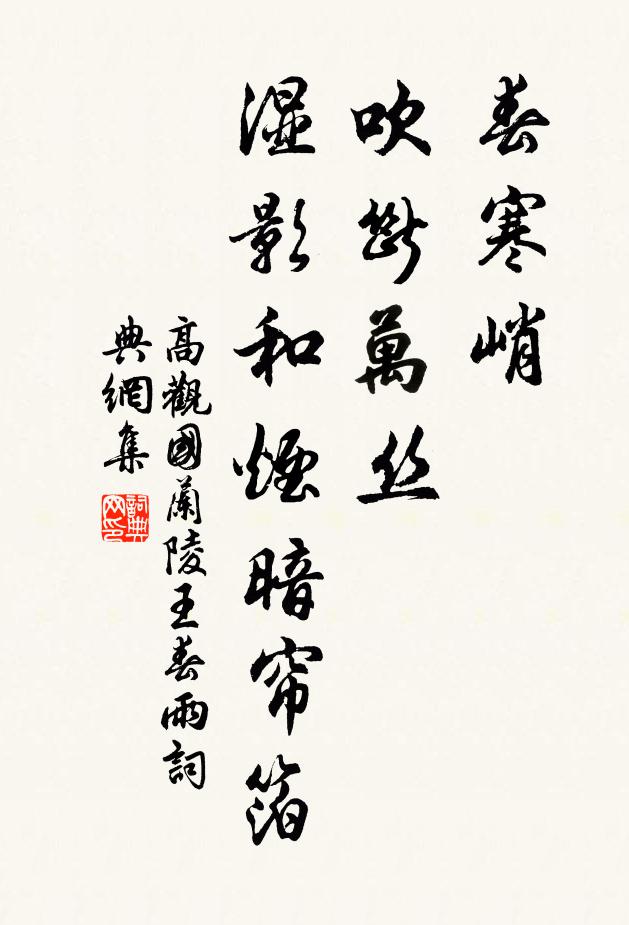 春寒峭
吹斷萬丝
湿影和煙暗帘箔
高觀國蘭陵王春雨詞
典網集
詞典網印